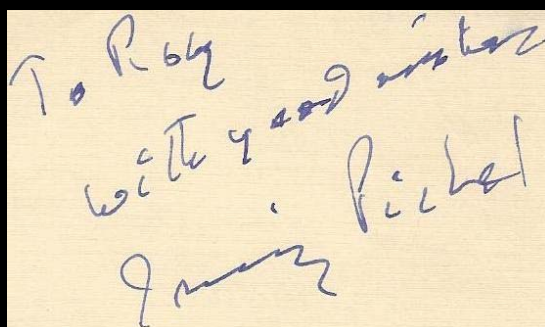 To Roby
with good wishes
Irving Pichel